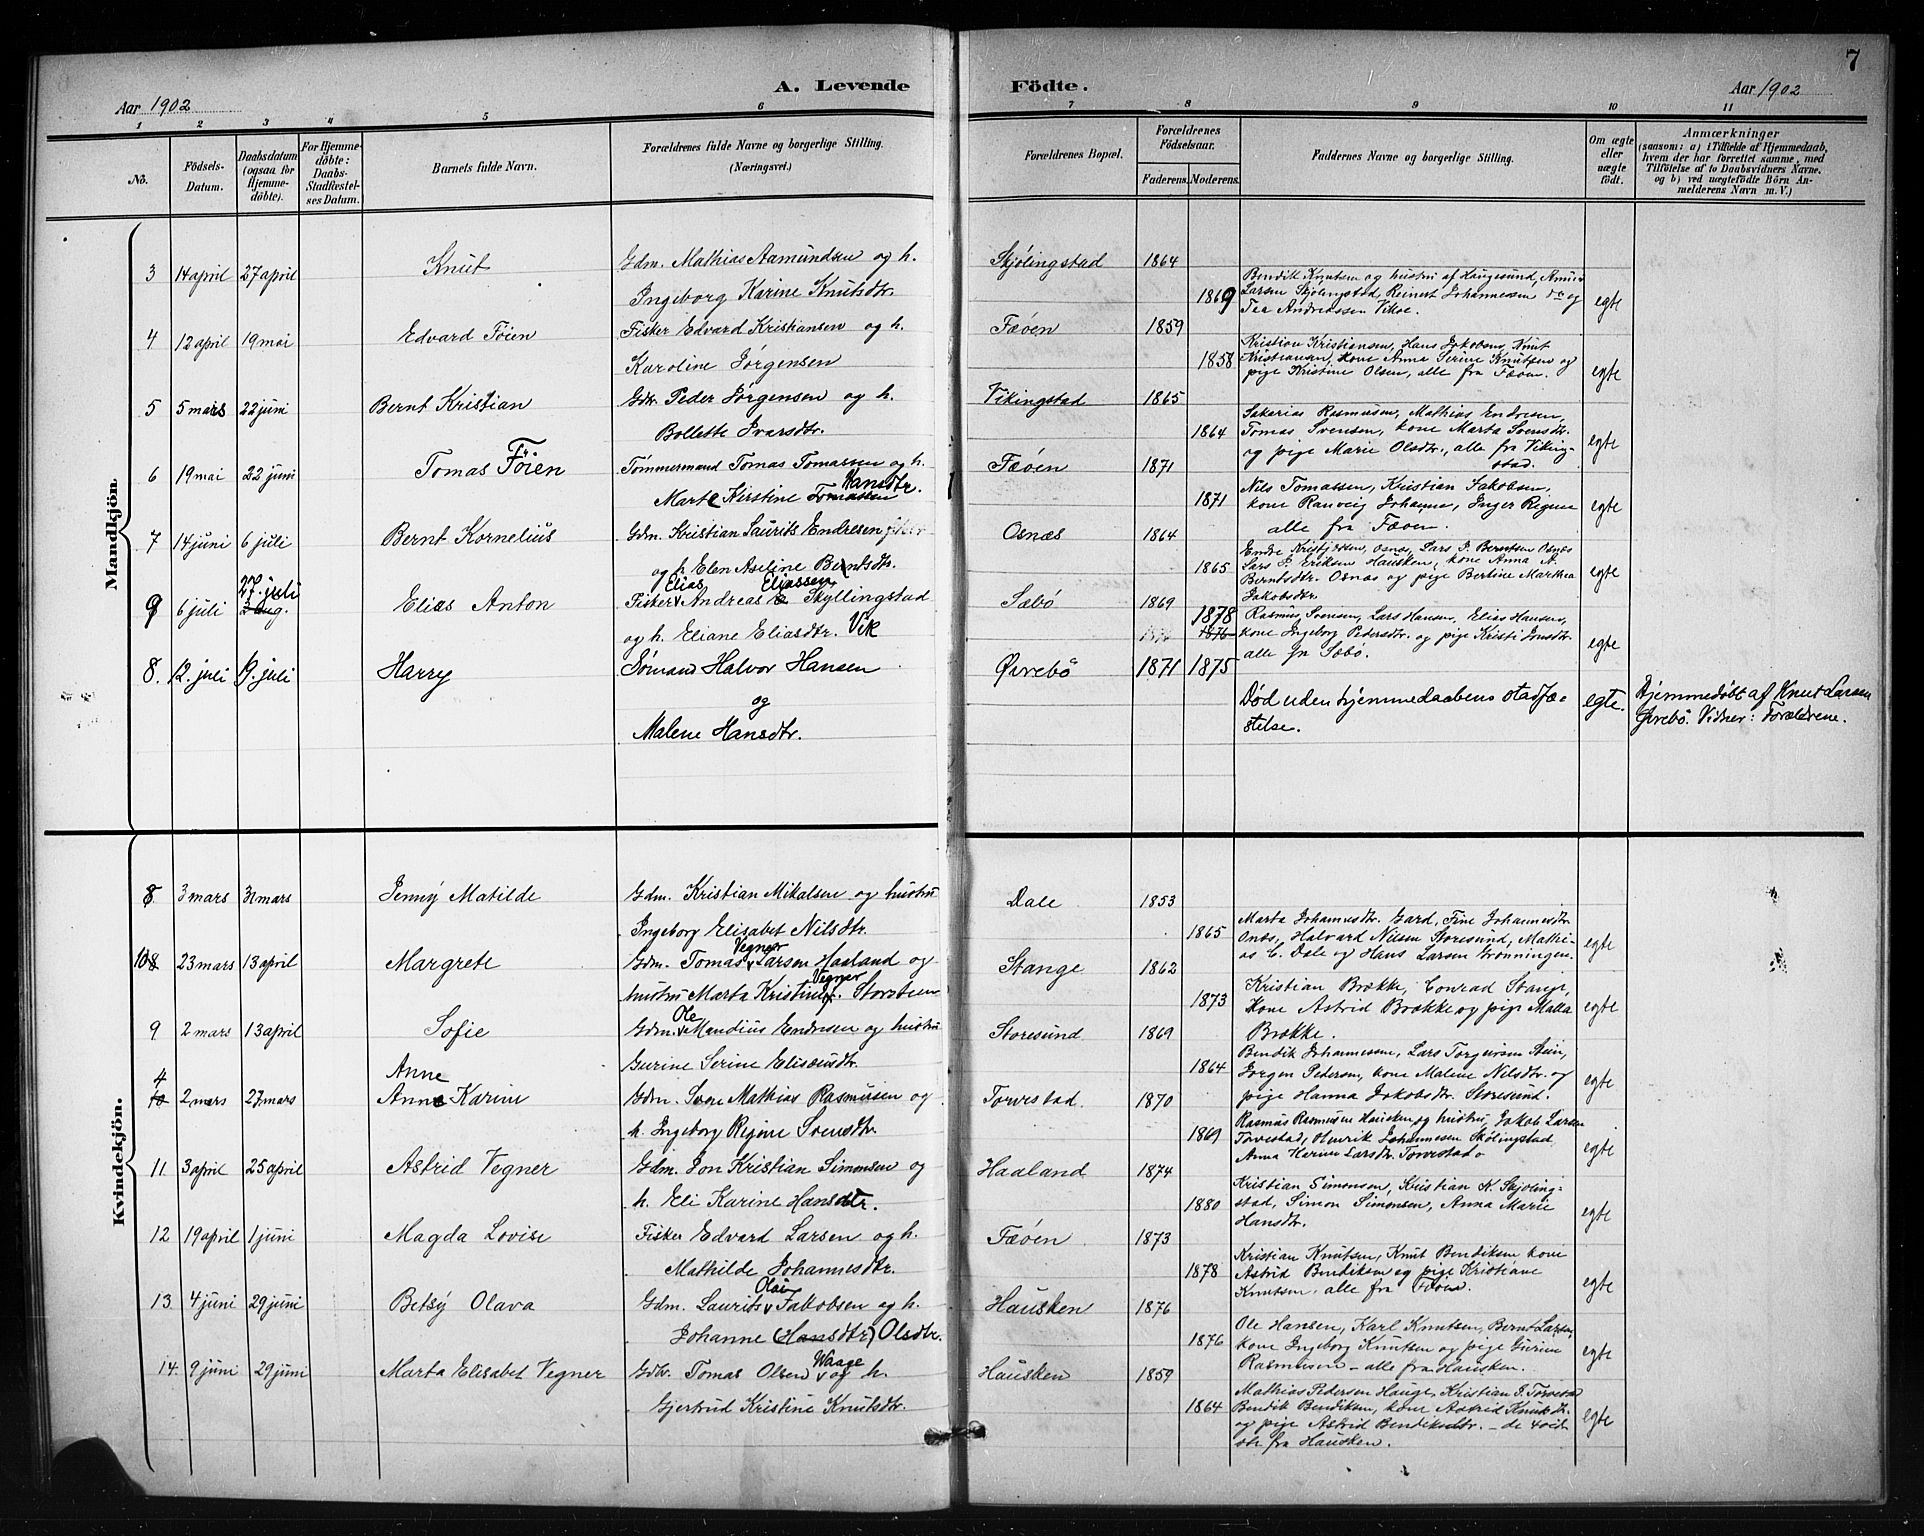 7
A. Levende Födte.
Aar 1902 Aar 1902
1 2 3 4 5 6 7 8 9 10 11
No.
Födsels-Datum.
Daabsdatum (ogsaa for Hjemme-döbte).
For Hjemme-döbte: Daabs-Stadfæstel-ses Datum.
Barnets fulde Navn.
Forældrenes fulde Navne og borgerlige Stilling.
(Næringsvei.)
Forældrenes Bopæl.
Forældrenes Födselsaar.
Faderens. Moderens.
Faddernes Navne og borgerlige Stilling.
Om ægte eller uægte födt.
Anmærkninger
(saasom: a) i Tilfælde af Hjemmedaab,
hvem der har forrettet samme, med
Tilföielse af to Daabsvidners Navne,
og b) ved uægtefödte Börn An-
melderens Navn m. V.)
Mandkjön.
3 14 april 27 april Knut Gdm. Mathias Aamundsen og h. Skjølingstad 1864
Ingeborg Karine Knutsdtr. 1869
Bendik Knutsen og hustru af Haugesund,
Larsen Skjølingstad, Reinert Johannessen do og
Tea Andreassen Vikse. egte
4 12 april 19 mai Edvard Föien Fisker Edvard Kristiansen og h. Fæöen 1859
Karoline Jörgensen 1858
Kristian Kristiansen, Hans Jakobsen, Knut
Kristiansen, kone Anna Serine Knutsen og
pige Kristine Olsen, alle fra Fæöen. egte
5 5 mars 22 juni Bernt Kristian Gdbr. Peder Jörgensen og h. Vikingstad 1865
Bollette Ivarsdtr. 1864
Sakarias Rasmussen, Mathias Endresen,
Tomas Svensen, kone Marta Svensdtr.
og pige Marie Olsdtr., alle fra Viking-
stad. egte
6 19 mai 22 juni Tomas Föien Tömmermand Tomas Tomassen og h. Fæöen 1871
Hansdtr.
Marte Kirstine Tomassen 1871
Nils Tomassen, Kristian Jakobsen,
kone Ranveig Johanne, Inger Regine
alle fra Fæöen. egte
7 14 juni 6 juli Bernt Kornelius Gdm. Kristian Laurits Endresen Osnæs 1864
og h. Elen Aseline Berntsdtr. 1865
Endre Kristjersen, Osnæs, Lars J. Berntsen Osnæs
Lars E. Eriksen Hausken, kone Anna A.
Berntsdtr. Osnæs og pige Bertine Marthea
Jakobsdtr. egte
27. juli
9 6 juli 3 aug. Elias Anton Fisker Andreas Skyllingstad Sæbö 1869
Elias Eliassen
og h. Eliane Eliasdtr. Vik 1878 1876
Rasmus Svensen, Lars Hansen, Elias Hansen,
kone Ingeborg Pedersdtr. og pige Kristi Jensdtr.
alle fr Sæbö. egte
8. 12. juli 19. juli Harry Sömand Halvor Hansen Øvrebö 1871 1875
og
Malene Hansdtr.
Död uden hjemmedaabens stadfæ-
stelse. egte.
Hjemmedöbt af Knut Larsen
Øvrebö. Vidner: Forældrene.
Kvindekjön.
8 3 mars 31 mars Jenny Matilde Gdm. Kristian Mikalsen og hustru Dale 1853
Ingeborg Elisabet Nilsdtr. 1865
Marta Johannesdtr. Gard, Tine Johannesdtr.
Osnes, Halvard Nilsen Storesund, Mathi-
as C. Dale og Hans Larsen Grönningen. egte
10 8 23 mars 13 april Margrete Gdm. Tomas Larsen Haaland og Stange 1862
Vegner
hustru Marta Kristine Storsteen 1873
Vegner
Kristian Brække, Conrad Stange,
kone Astrid Brække og pige Malla
Brække. egte
9 2 mars 13 april Sofie Gdm. Mandius Endresen og hustru Storesund 1869
Ole
Gurine Serine Eliseusdtr. 1864
Bendik Johannessen, Lars Torgersen Stein,
Jørgen Pedersen, kone Malene Nilsdtr. og
pige Hanna Jakobsdtr. Storesund. egte
4
Anne
10 2 mars 27 mars Anne Karine Gdm. Sven Mathias Rasmussen og Torvestad 1870
h. Ingeborg Regine Svensdtr. 1869
Rasmus Rasmussen Hausken og hustru, Jakob Larsen
Torvestad, Henrik Johannesen Skölingstad
Anna Karine Larsdtr. Torvestad. egte
11 3 april 25 april Astrid Vegner Gdm. Jon Kristian Simonsen og Haaland 1874
h. Eli Karine Hansdtr. 1880
Kristian Simonsen, Kristian K. Skjöling-
stad, Simon Simonsen, Anna Marie
Hansdtr. egte
12 19 april 1 juni Magda Lovise Fisker Edvard Larsen og h. Fæöen 1873
Mathilde Johannesdtr. 1878
Kristian Knutsen, Knut Bendiksen kone
Astrid Bendiksen og pige Kristiane
Knutsen, alle fra Fæöen. egte
13. 4 juni 29 juni Betsy Olava Gdm. Laurits Jakobsen og h. Hausken 1876
Olai
Johanne (Hansdtr) Olsdtr. 1876
Ole Hansen, Karl Knutsen, Bernt Larsen,
kone Ingeborg Knutsen og pige Gurine
Rasmussen – alle fra Hausken. egte
14. 9 juni 29 juni Marta Elisabet Vegner Gdbr. Tomas Olsen og h. Hausken 1859
Waage
Gjertrud Kristine Knutsdtr. 1864
Mathias Pedersen Hauge, Kristian J. Torvestad
Bendik Bendiksen, kone Astrid Knutsdtr.
og pige Astrid Bendiksdtr. – de 4 sid-
ste fra Hausken. egte